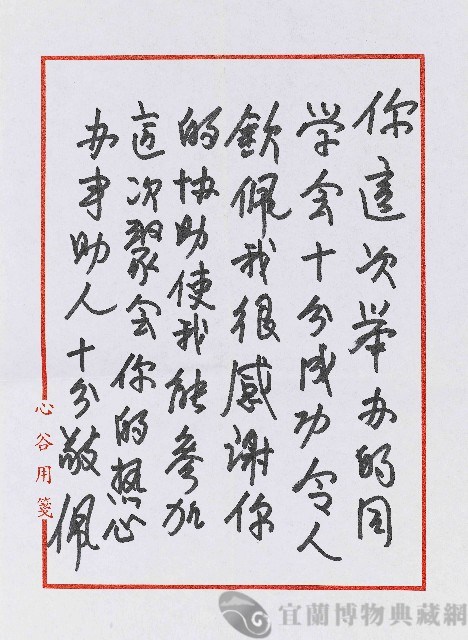 你這次举办的同
学会十分成功令人
欽佩我很感谢你
的协助使我能參加
這次聚会你的热心
办事助人十分敬佩
心谷用箋
宜蘭博物典藏網